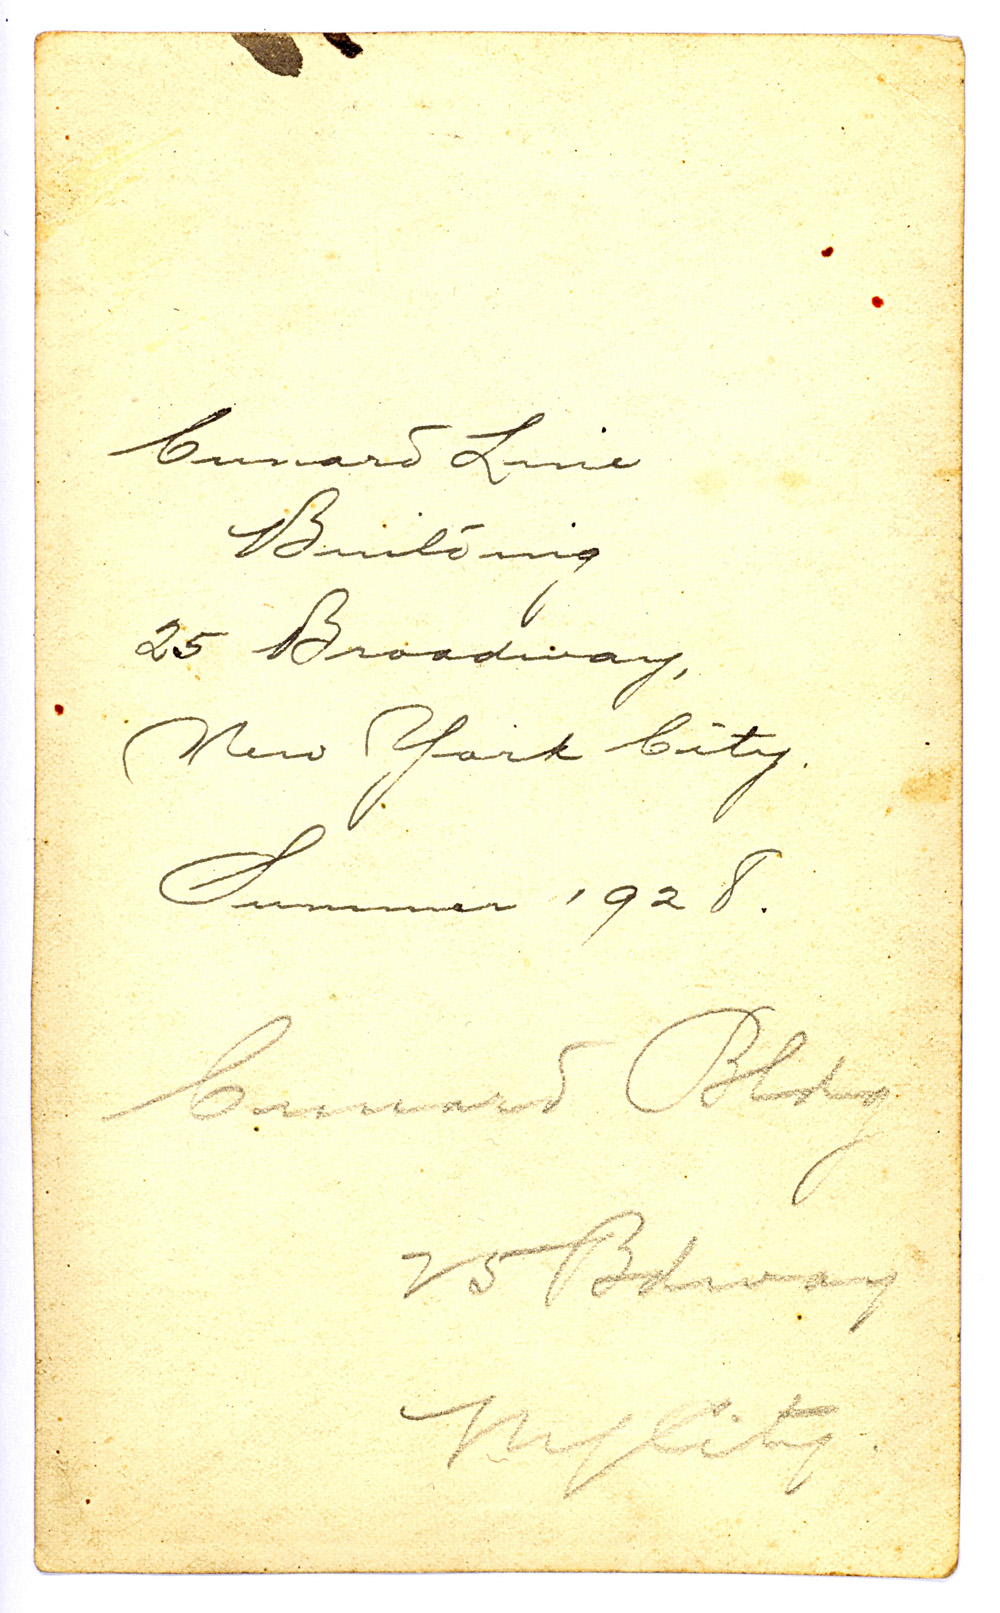 Cunard Line
Building
25 Broadway,
New York City.
Summer 1928.
Cunard Bldg
25 Bdway
NyCity.